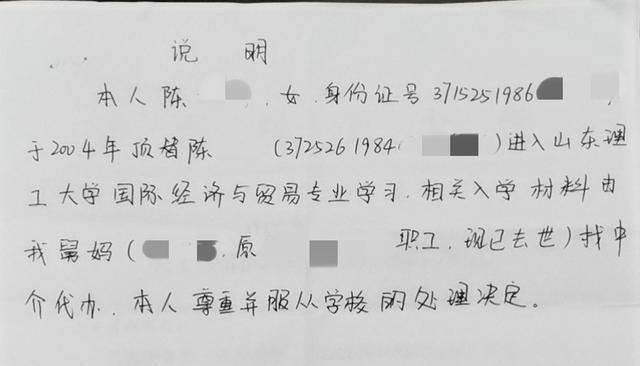 说 明
本人陈 ,女,身份证号 3715251986 ,
于2004年顶替陈 (3725261984 )进入山东理
工大学国际经济与贸易专业学习,相关入学材料由
我舅妈( ,原 职工,现已去世)找中
介代办,本人尊重并服从学校的处理决定。